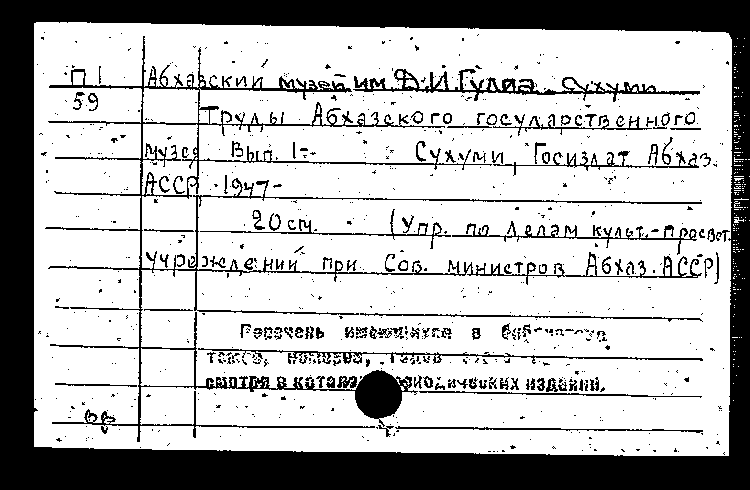 П 1 Абхазский музей им. Д.И.Гулиа. Сухуми
59 Труды Абхазского государственного
музея. Вып. 1-- Сухуми, Госиздат Абхаз.
АССР, 1947-
20 см. - (Упр. по делам культ.-просвет.
учреждений при Сов. министров Абхаз. АССР)
Перечень имеющихся в библиотеке
томов, номеров,
смотри в каталоге периодических изданий.